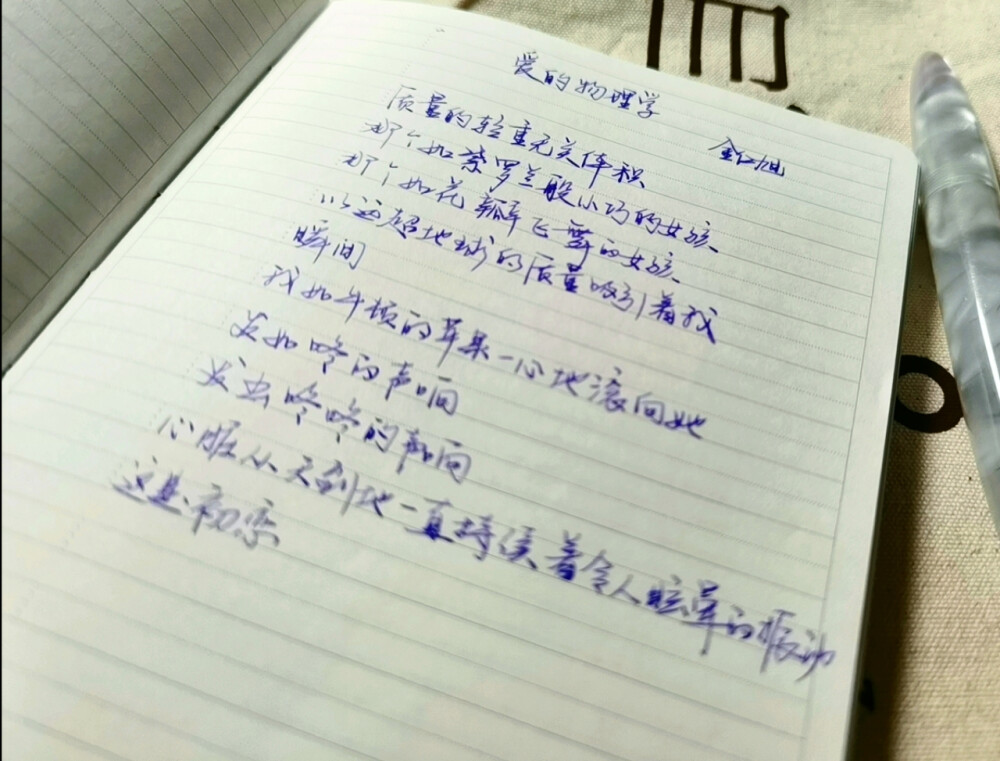 爱的物理学
金仁旭
质量的轻重无关体积
那个如紫罗兰般小巧的女孩
那个如花瓣飞舞的女孩
以远超地球的质量吸引着我
瞬间
我如牛顿的苹果一心地滚向她
发出咚的声响
发出咚咚的声响
心脏从天到地一直持续着令人眩晕的振动
这是初恋